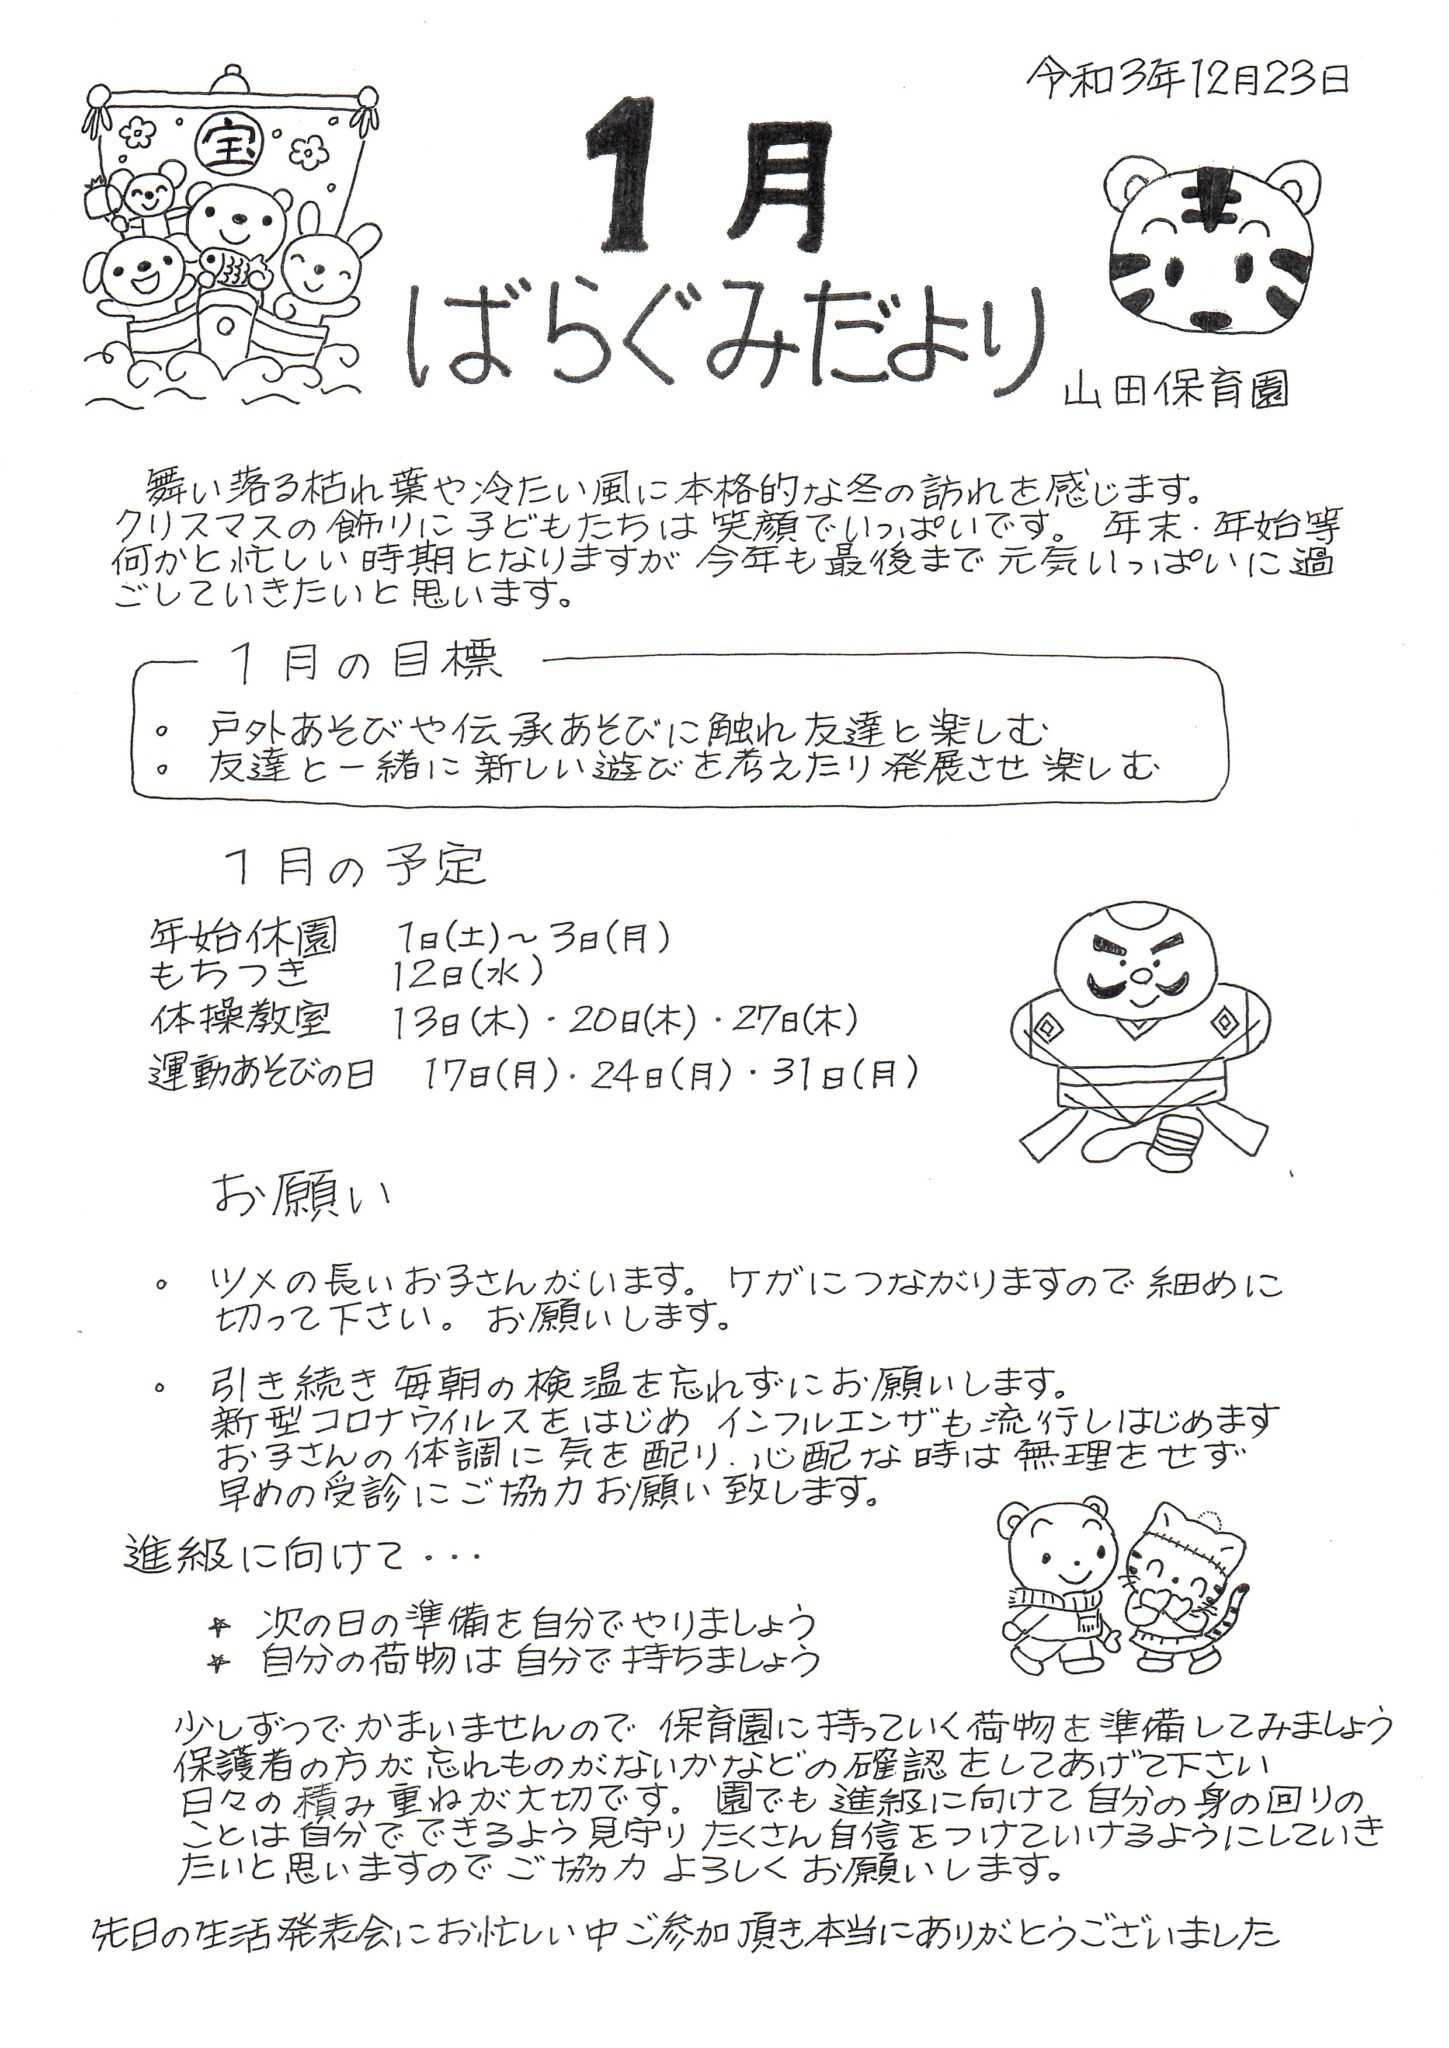 令和3年12月23日
宝
1月
ばらぐみだより
山田保育園
舞い落る枯れ葉や冷たい風に本格的な冬の訪れを感じます。
クリスマスの飾りに子どもたちは笑顔でいっぱいです。年末・年始等
何かと忙しい時期となりますが今年も最後まで元気いっぱいに過
ごしていきたいと思います。
1月の目標
。戸外あそびや伝承あそびに触れ友達と楽しむ
。友達と一緒に新しい遊びを考えたり発展させ楽しむ
1月の予定
年始休園 1日(土)～3日(月)
もちつき 12日(水)
体操教室 13日(木)・20日(木)・27日(木)
運動あそびの日 17日(月)・24日(月)・31日(月)
お願い
。ツメの長いお子さんがいます。ケガにつながりますので細めに
切って下さい。お願いします。
。引き続き毎朝の検温を忘れずにお願いします。
新型コロナウイルスをはじめインフルエンザも流行しはじめます
お子さんの体調に気を配り.心配な時は無理をせず
早めの受診にご協力お願い致します。
進級に向けて・・・
★ 次の日の準備を自分でやりましょう
★ 自分の荷物は自分で持ちましょう
少しずつでかまいませんので保育園に持っていく荷物を準備してみましょう
保護者の方が忘れものがないかなどの確認をしてあげて下さい
日々の積み重ねが大切です。園でも進級に向けて自分の身の回りの
ことは自分でできるよう見守りたくさん自信をつけていけるようにしていき
たいと思いますのでご協力よろしくお願いします。
先日の生活発表会にお忙しい中ご参加頂き本当にありがとうございました